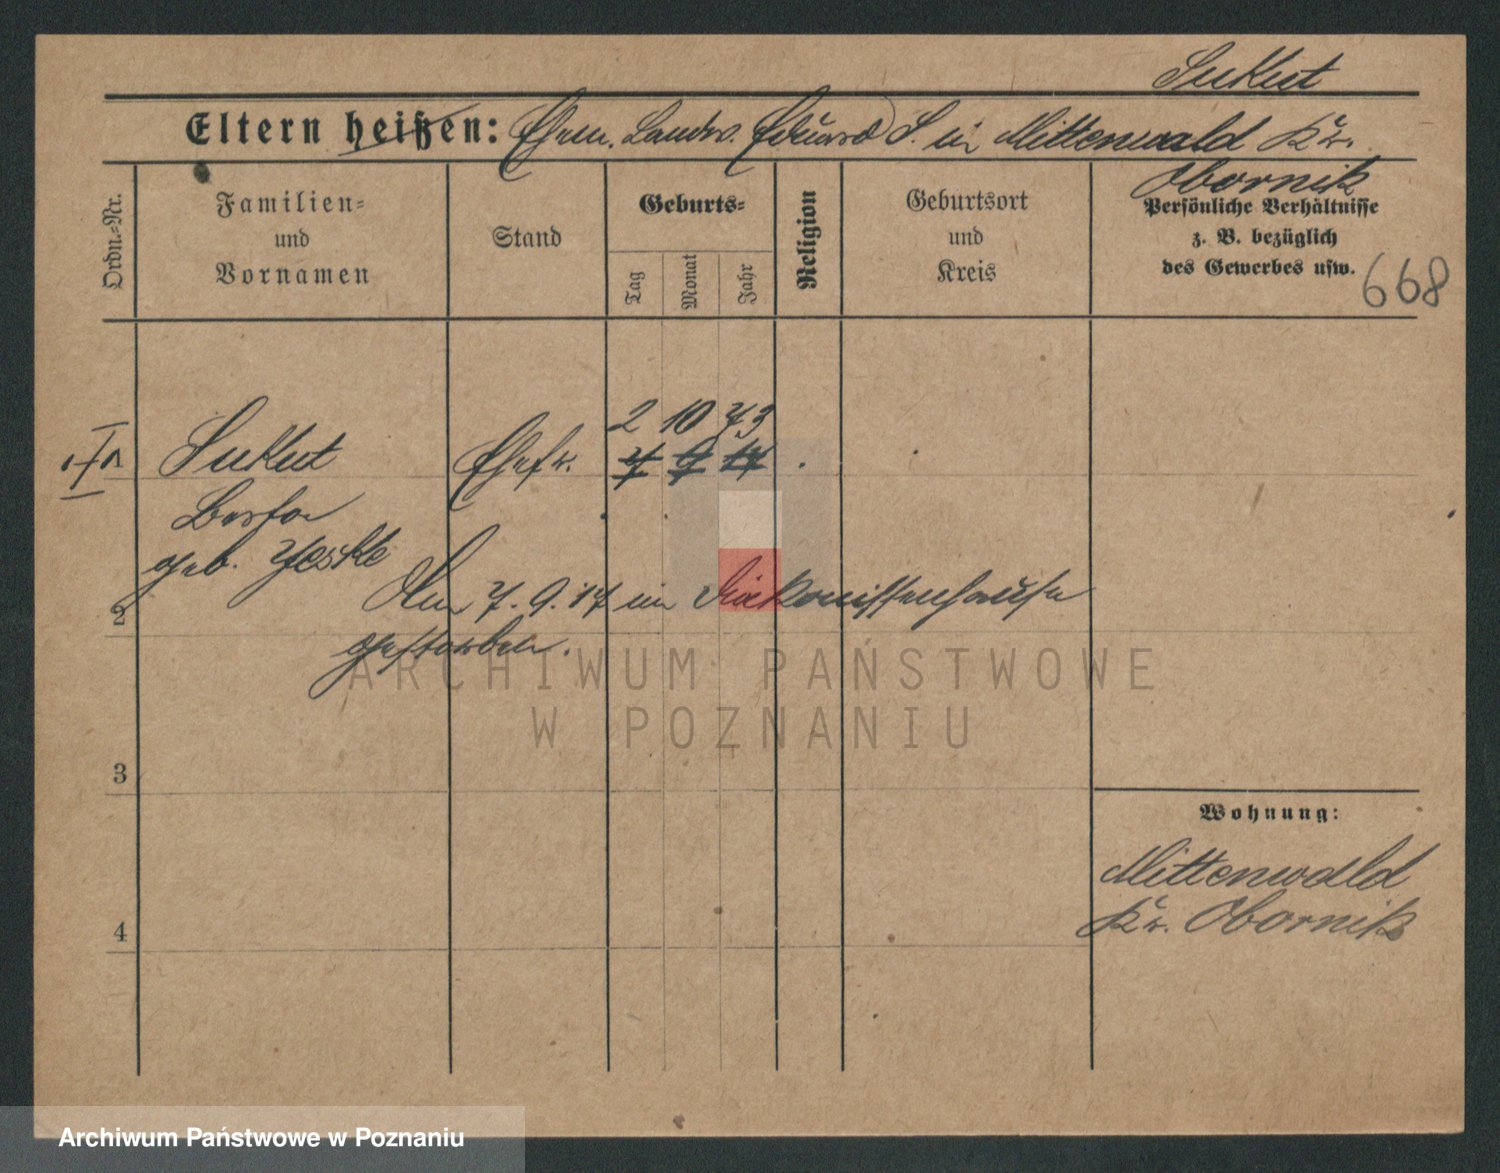 Sukut
Eltern heißen: Ehem. Landw. Eduard S. in Mittenwald Kr.
Obornik
Ordn.-Nr.
Familien-
und
Vornamen
Stand
Geburts-
Tag
Monat
Jahr
Religion
Geburtsort
und
Kreis
Persönliche Verhältnisse
z. B. bezüglich
des Gewerbes usw.
668
2 10 73
Sukut Ehefr. 7 9 17
Berta
geb. Jeske
Am 7. 9. 17 im Diakonissenhause
2
gestorben.
ARCHIWUM PAŃSTWOWE
W POZNANIU
3
Wohnung:
Mittenwald
4 Kr. Obornik
Archiwum Państwowe w Poznaniu